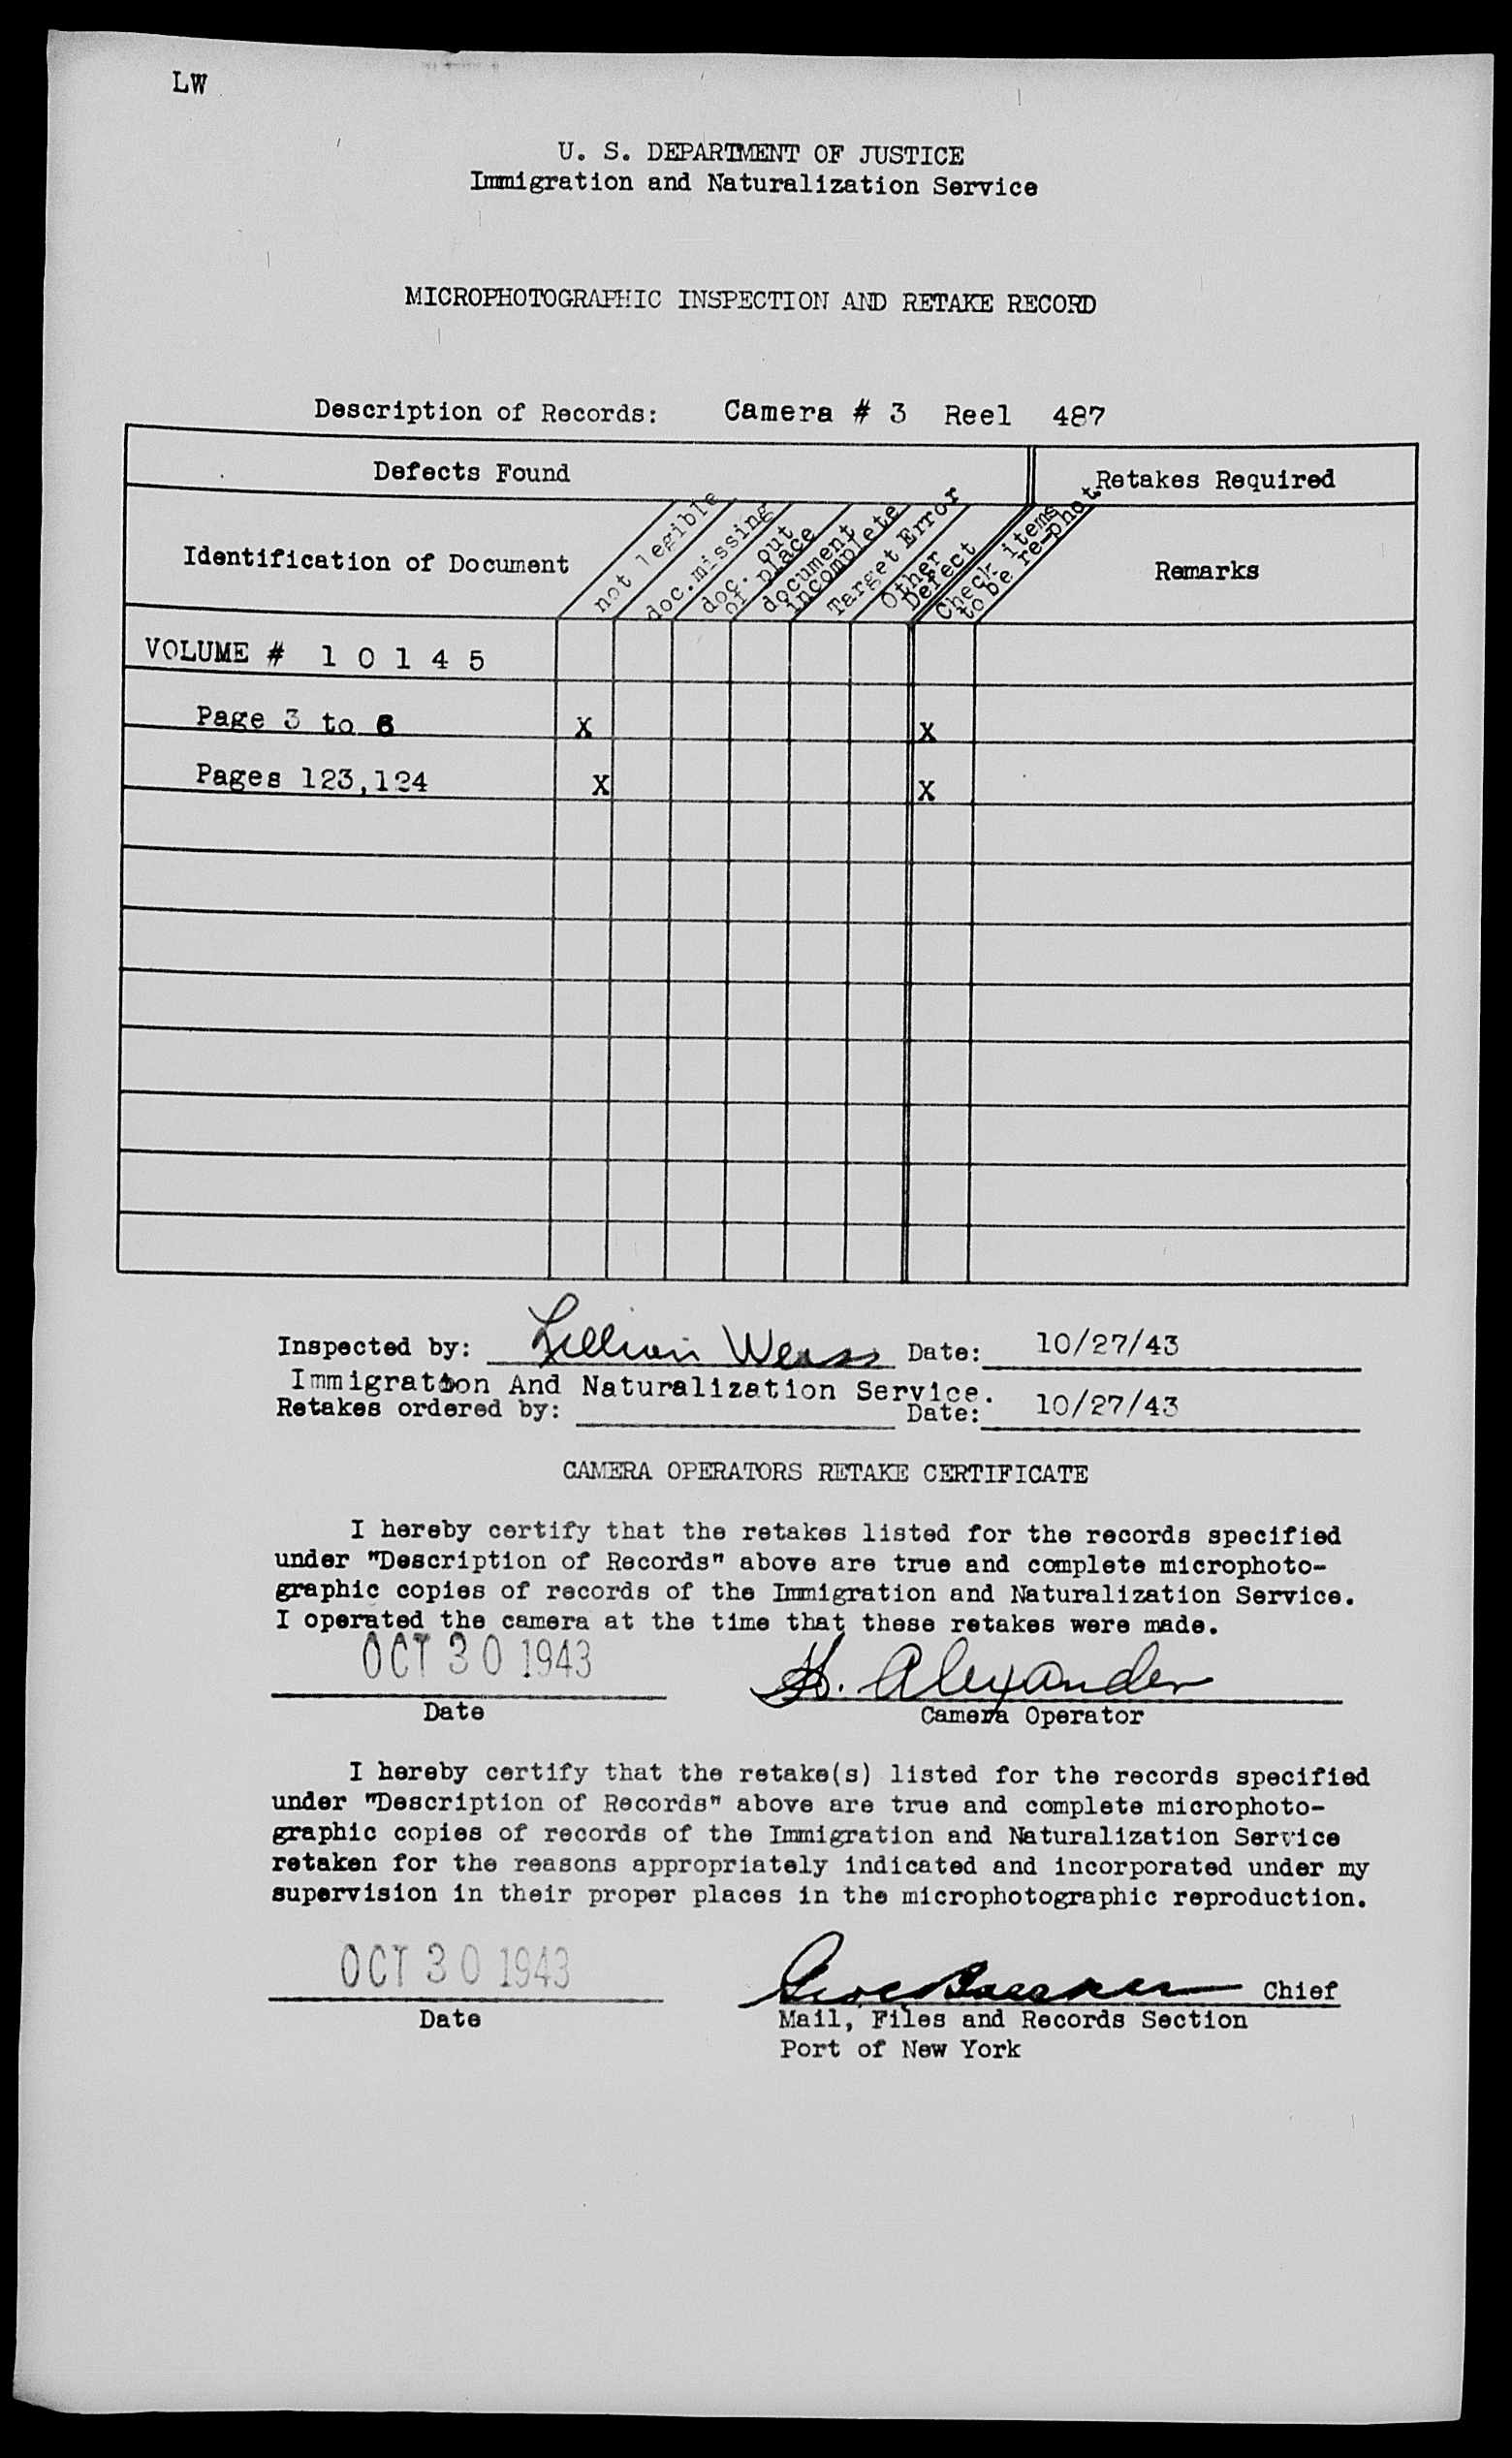 LW
U. S. DEPARTMENT OF JUSTICE
Immigration and Naturalization Service
MICROPHOTOGRAPHIC INSPECTION AND RETAKE RECORD
Description of Records: Camera # 3 Reel 487
Defects Found
Retakes Required
Identification of Document
not legible
doc. missing
doc. out
of place
document
incomplete
Target Error
Other
Defect
Check items
to be re-phot.
Remarks
VOLUME # 1 0 1 4 5
Page 3 to 6 X X
Pages 123,124 X X
Inspected by: Lillian Weiss Date: 10/27/43
Immigration And Naturalization Service.
Retakes ordered by: Date: 10/27/43
CAMERA OPERATORS RETAKE CERTIFICATE
I hereby certify that the retakes listed for the records specified
under "Description of Records" above are true and complete microphoto-
graphic copies of records of the Immigration and Naturalization Service.
I operated the camera at the time that these retakes were made.
OCT 30 1943
Alexander
Date
Camera Operator
I hereby certify that the retake(s) listed for the records specified
under "Description of Records" above are true and complete microphoto-
graphic copies of records of the Immigration and Naturalization Service
retaken for the reasons appropriately indicated and incorporated under my
supervision in their proper places in the microphotographic reproduction.
OCT 30 1943
Chief
Date
Mail, Files and Records Section
Port of New York